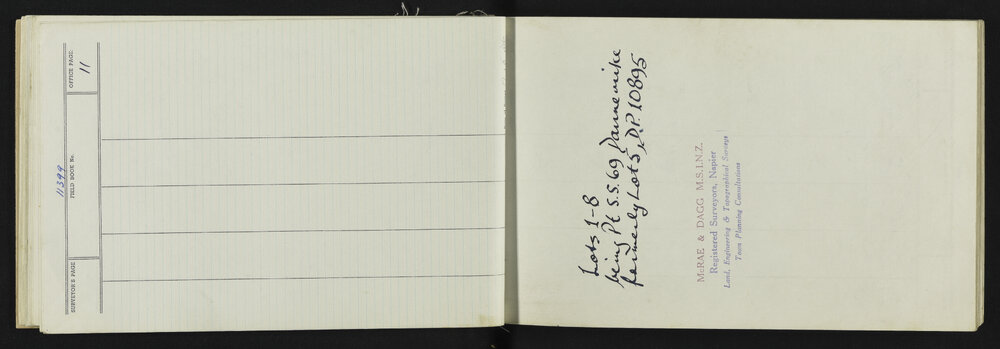 SURVEYOR'S PAGE
FIELD BOOK No.
11399
OFFICE PAGE:
11
Lots 1-8
being Pt S.S. 69 Dannevirke
formerly Lot 5, D.P. 10895
McRAE & DAGG M.S.I.N.Z.
Registered Surveyors, Napier
Land, Engineering & Topographical Surveys
Town Planning Consultations